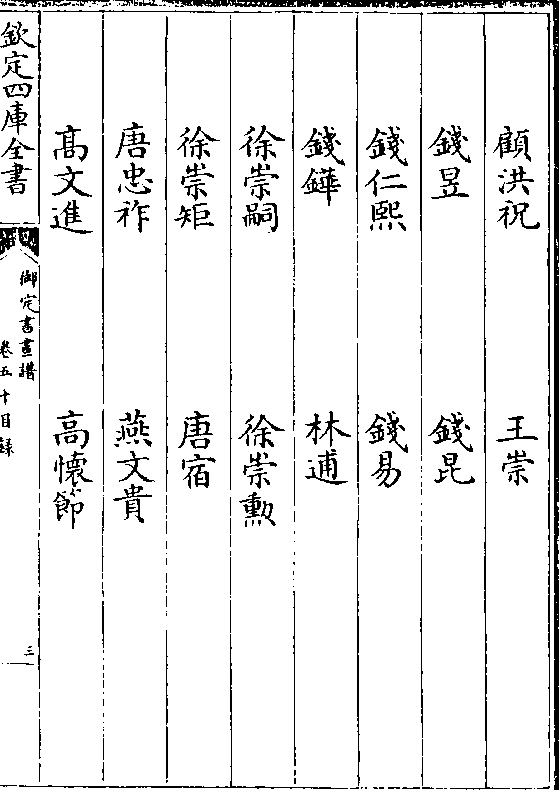 顧洪祝 王崇
錢昱 錢昆
錢仁熙 錢易
錢鏵 林逋
徐崇嗣 徐崇勲
徐崇矩 唐宿
唐忠祚 燕文貴
髙文進 高懐節
欽定四庫全書
御定書畫譜
卷五十目録
三